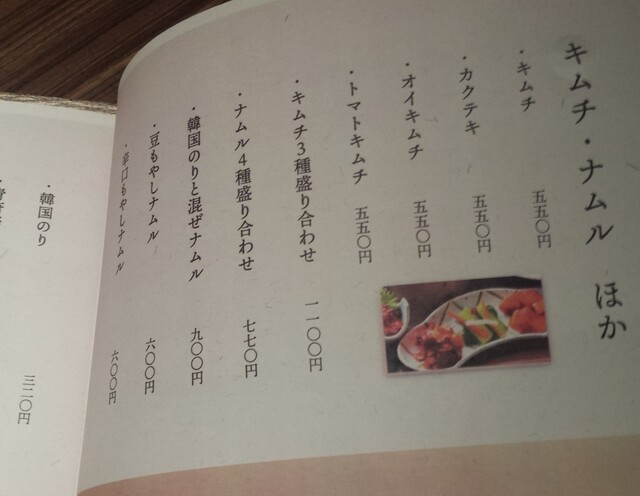 キムチ・ナムル ほか
・キムチ 五五〇円
・カクテキ 五五〇円
・オイキムチ 五五〇円
・トマトキムチ 五五〇円
・キムチ3種盛り合わせ 一一〇〇円
・ナムル4種盛り合わせ 七七〇円
・韓国のりと混ぜナムル 九〇〇円
・豆もやしナムル 六〇〇円
・辛口もやしナムル 六〇〇円
・韓国のり 三二〇円